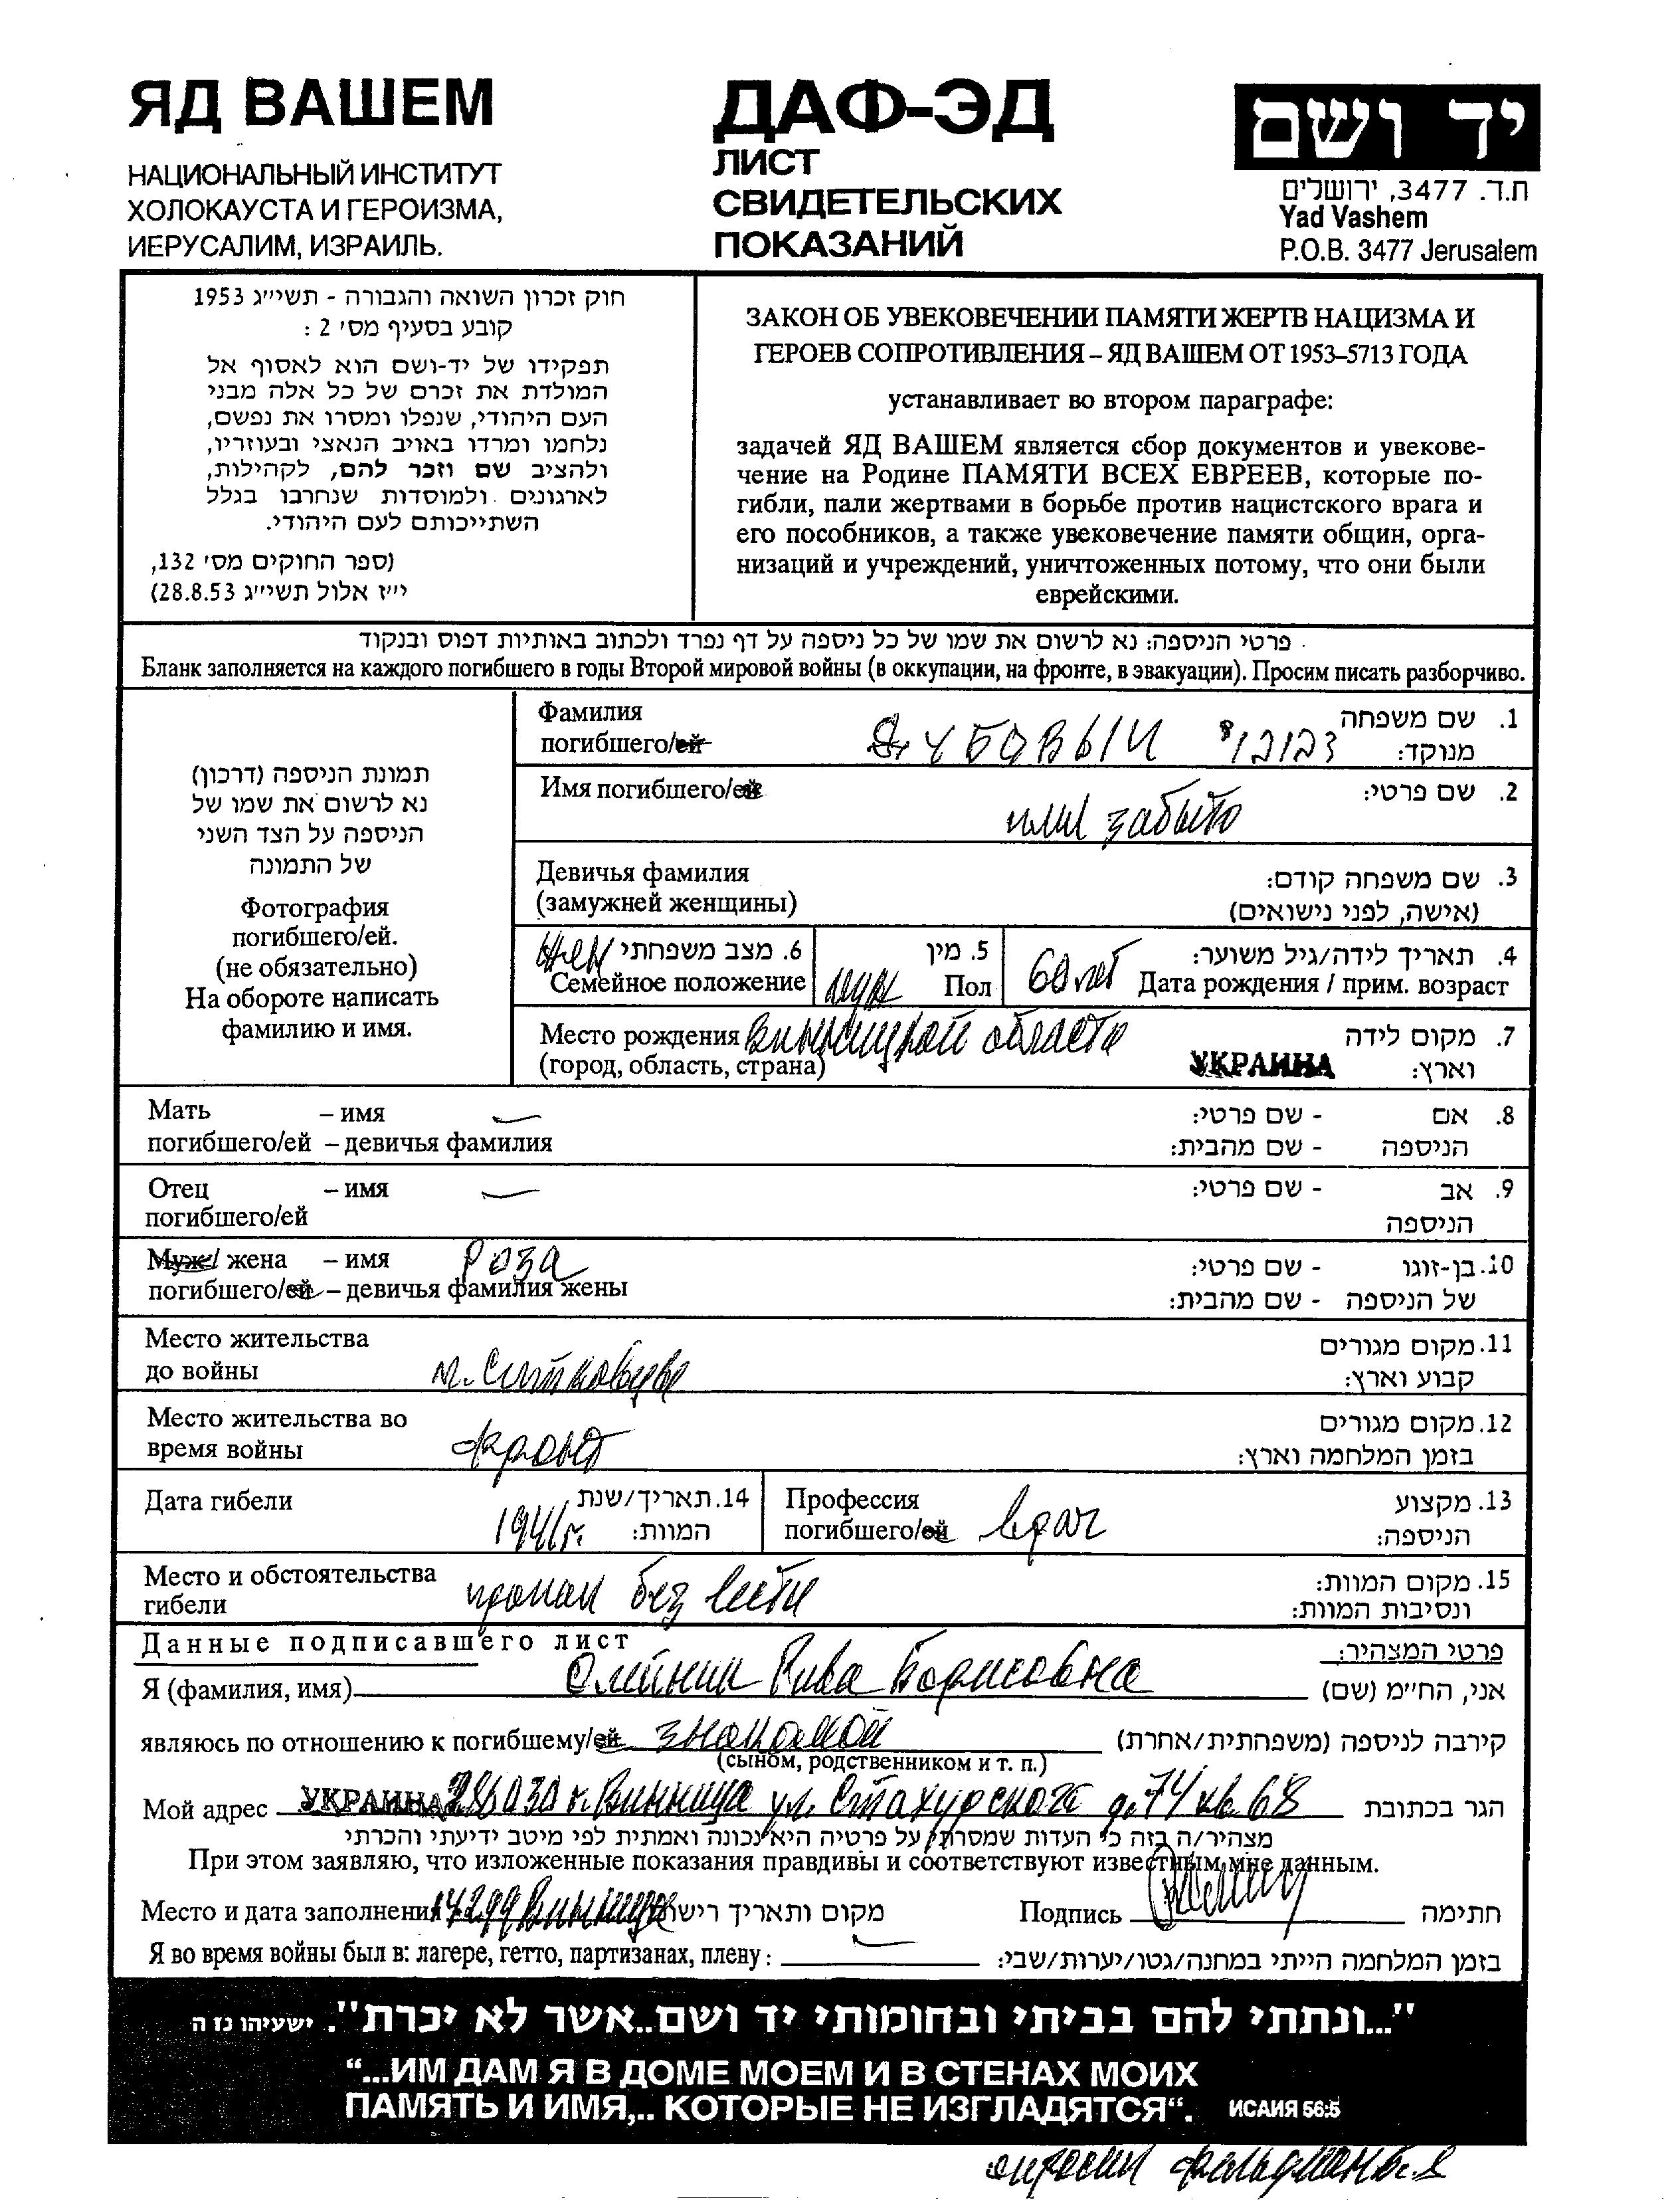 ЯД ВАШЕМ
НАЦИОНАЛЬНЫЙ ИНСТИТУТ
ХОЛОКАУСТА И ГЕРОИЗМА,
ИЕРУСАЛИМ, ИЗРАИЛЬ.
ДАФ-ЭД
ЛИСТ
СВИДЕТЕЛЬСКИХ
ПОКАЗАНИЙ
יד ושם
ת.ד. 3477, ירושלים
Yad Vashem
P.O.B. 3477 Jerusalem
חוק זכרון השואה והגבורה - תשי״ג 1953
קובע בסעיף מס׳ 2 :
תפקידו של יד-ושם הוא לאסוף אל
המולדת את זכרם של כל אלה מבני
העם היהודי, שנפלו ומסרו את נפשם,
נלחמו ומרדו באויב הנאצי ובעוזריו,
ולהציב שם וזכר להם, לקהילות,
לארגונים ולמוסדות שנחרבו בגלל
השתייכותם לעם היהודי.
(ספר החוקים מס׳ 132,
י״ז אלול תשי״ג 28.8.53)
ЗАКОН ОБ УВЕКОВЕЧЕНИИ ПАМЯТИ ЖЕРТВ НАЦИЗМА И
ГЕРОЕВ СОПРОТИВЛЕНИЯ – ЯД ВАШЕМ ОТ 1953–5713 ГОДА
устанавливает во втором параграфе:
задачей ЯД ВАШЕМ является сбор документов и увекове-
чение на Родине ПАМЯТИ ВСЕХ ЕВРЕЕВ, которые по-
гибли, пали жертвами в борьбе против нацистского врага и
его пособников, а также увековечение памяти общин, орга-
низаций и учреждений, уничтоженных потому, что они были
еврейскими.
פרטי הניספה: נא לרשום את שמו של כל ניספה על דף נפרד ולכתוב באותיות דפוס ובנקוד
Бланк заполняется на каждого погибшего в годы Второй мировой войны (в оккупации, на фронте, в эвакуации). Просим писать разборчиво.
תמונת הניספה (דרכון)
נא לרשום את שמו של
הניספה על הצד השני
של התמונה
Фотография
погибшего/ей.
(не обязательно)
На обороте написать
фамилию и имя.
Фамилия 1. שם משפחה
погибшего/ей מנוקד:
Имя погибшего/ей 2. שם פרטי:
имя забыто
Девичья фамилия 3. שם משפחה קודם:
(замужней женщины) (אישה, לפני נישואים)
жен 6. מצב משפחתי 5. מין 4. תאריך לידה/גיל משוער:
Семейное положение муж Пол 60 лет Дата рождения / прим. возраст
Место рождения Винницкой области 7. מקום לידה
(город, область, страна) УКРАИНА וארץ:
Мать – имя - שם פרטי: 8. אם
погибшего/ей – девичья фамилия - שם מהבית: הניספה
Отец – имя - שם פרטי: 9. אב
погибшего/ей הניספה
Муж/ жена – имя Роза - שם פרטי: 10. בן-זוגו
погибшего/ей – девичья фамилия жены - שם מהבית: של הניספה
Место жительства 11. מקום מגורים
до войны м. Ситковцы קבוע וארץ:
Место жительства во 12. מקום מגורים
время войны фронт בזמן המלחמה וארץ:
Дата гибели 14. תאריך/שנת Профессия 13. מקצוע
1941г. המוות: погибшего/ей врач הניספה:
Место и обстоятельства 15. מקום המוות:
гибели пропал без вести ונסיבות המוות:
Данные подписавшего лист פרטי המצהיר:
Я (фамилия, имя) Олейник Рива Борисовна אני, הח״מ (שם)
являюсь по отношению к погибшему/ей знакомой קירבה לניספה (משפחתית/אחרת)
(сыном, родственником и т. п.)
Мой адрес УКРАИНА 286030 г. Винница ул. Стахурского д. 74 кв. 68 הגר בכתובת
מצהיר/ה בזה כי העדות שמסרתי על פרטיה היא נכונה ואמתית לפי מיטב ידיעתי והכרתי
При этом заявляю, что изложенные показания правдивы и соответствуют известным мне данным.
Место и дата заполнения Винница מקום ותאריך רישום Подпись חתימה
Я во время войны был в: лагере, гетто, партизанах, плену : בזמן המלחמה הייתי במחנה/גטו/יערות/שבי:
"...ונתתי להם בביתי ובחומותי יד ושם..אשר לא יכרת". ישעיהו נז ה
“...ИМ ДАМ Я В ДОМЕ МОЕМ И В СТЕНАХ МОИХ
ПАМЯТЬ И ИМЯ,.. КОТОРЫЕ НЕ ИЗГЛАДЯТСЯ“. ИСАИЯ 56:5